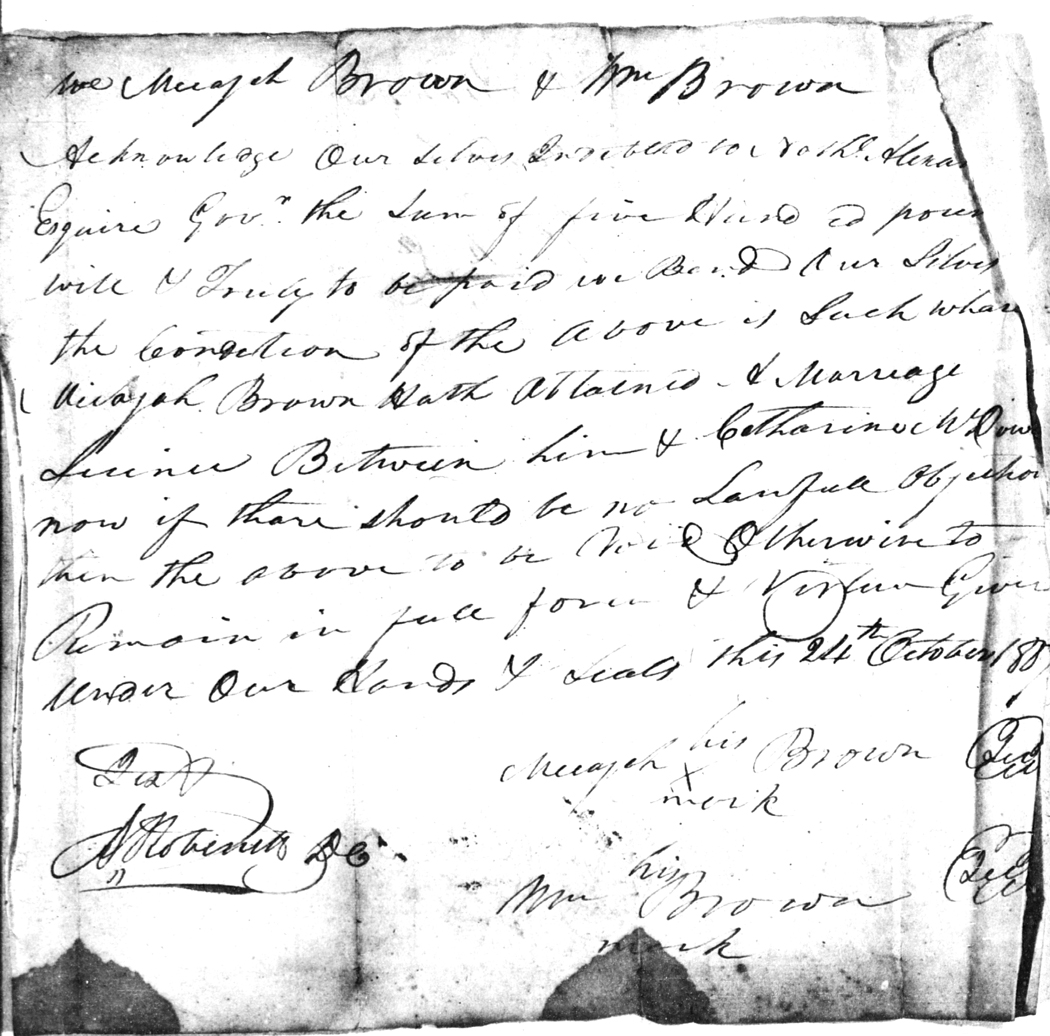 we Micajah Brown & Wm Brown
Acknowledge Our Selves Indebted to Nathl. Alexa
Esquire Govr. the Sum of five Hund ed poun
will & Truly to be paid we Bend Our Selves
the Condetion of the above is Such whare
Micajah Brown Hath Attained A Marreage
Licince Between him & Catharine McDow
now if thare should be no Lawfull Objectio
then the above to be Void Otherwise to
Remain in full force & Virtue Given
under Our Hands & Seals this 24th October 180
his
Micajah X Brown
mark
Test
his
Wm Brown
mark